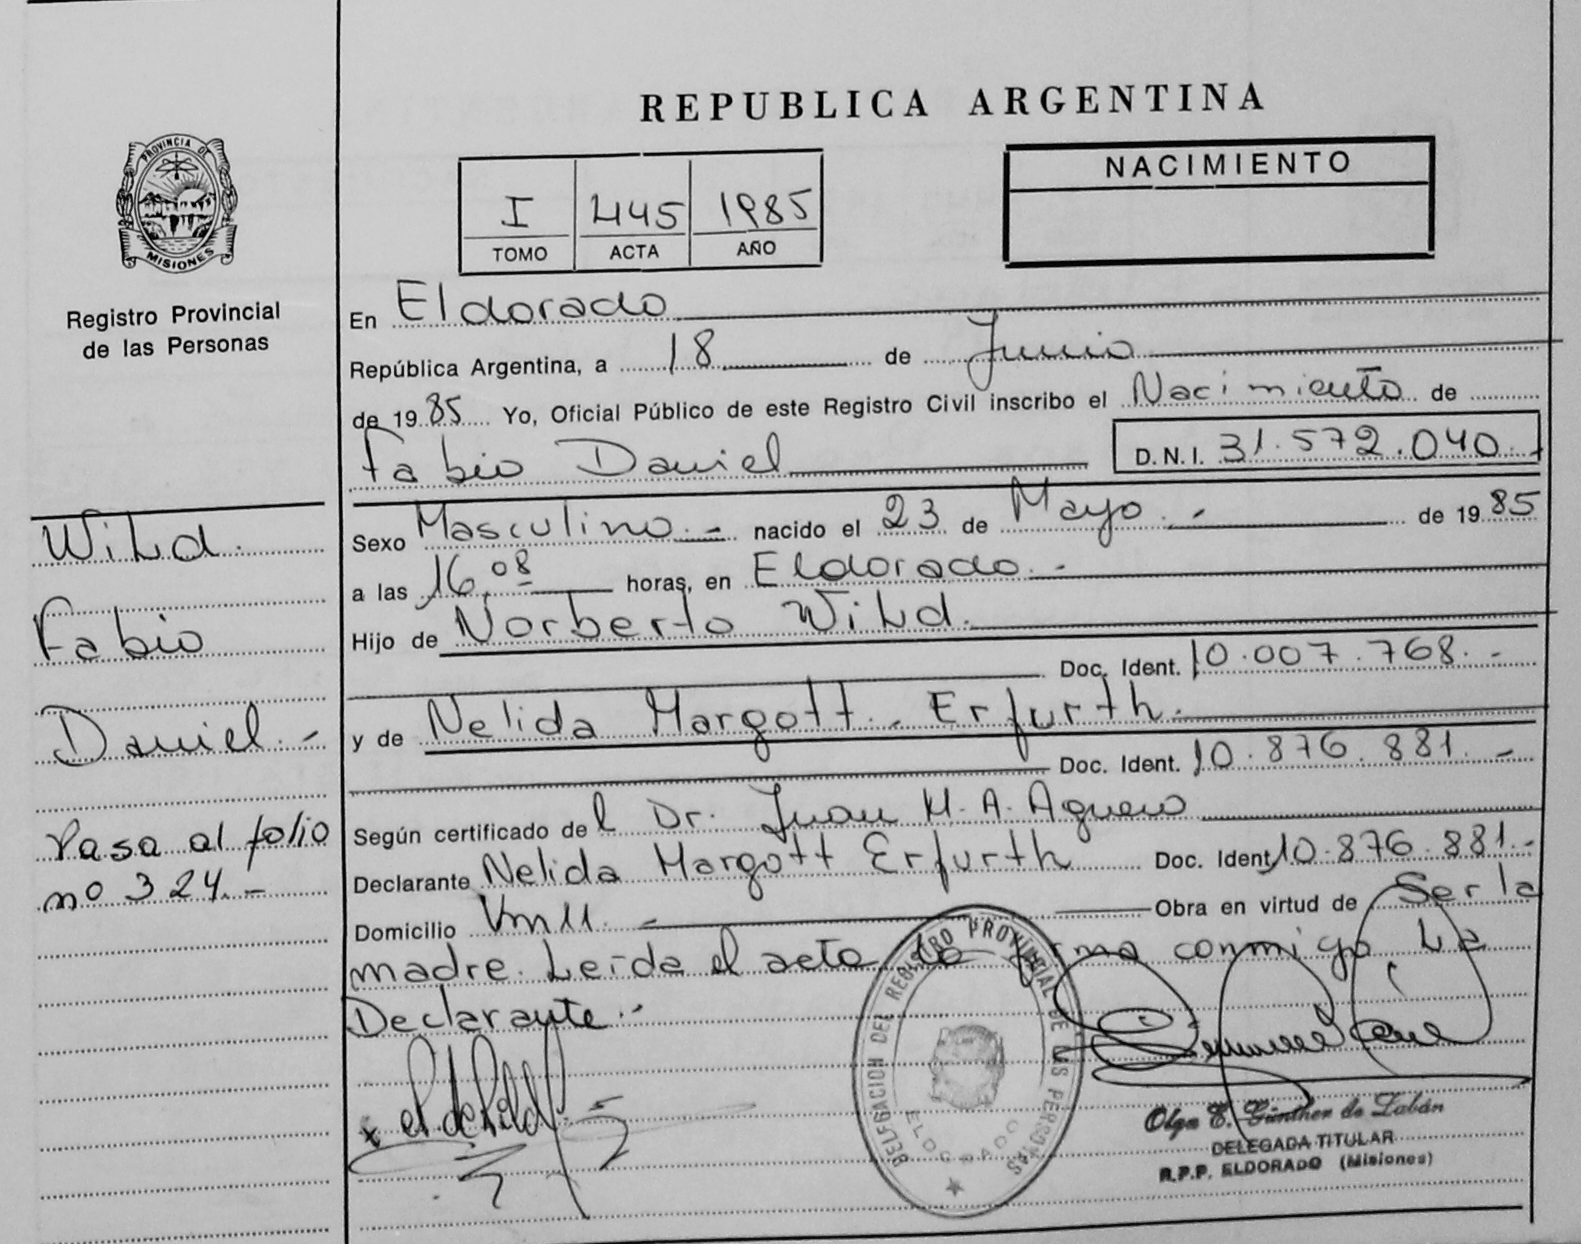 REPUBLICA ARGENTINA
PROVINCIA DE
MISIONES
Registro Provincial
de las Personas
I 445 1985
TOMO ACTA AÑO
NACIMIENTO
En Eldorado
República Argentina, a 18 de Junio
de 1985 Yo, Oficial Público de este Registro Civil inscribo el Nacimiento de
Fabio Daniel D.N.I. 31.572.040.-
Sexo Masculino.- nacido el 23 de Mayo.- de 1985
a las 16,08 horas, en Eldorado.-
Hijo de Norberto Wild.
Doc. Ident. 10.007.768.-
y de Nelida Margott Erfurth.
Doc. Ident. 10.876.881.-
Según certificado del Dr. Juan M. A. Aguero
Declarante Nelida Margott Erfurth Doc. Ident 10.876.881.-
Domicilio Km 11.- Obra en virtud de Ser la
madre. Leída el acta la firma conmigo La
Declarante.-
Wild.
Fabio
Daniel.-
Pasa al folio
nº 324.-
DELEGACION DEL REGISTRO PROVINCIAL DE LAS PERSONAS
ELDORADO
Olga E. Günther de Labán
DELEGADA TITULAR
R.P.P. ELDORADO (Misiones)